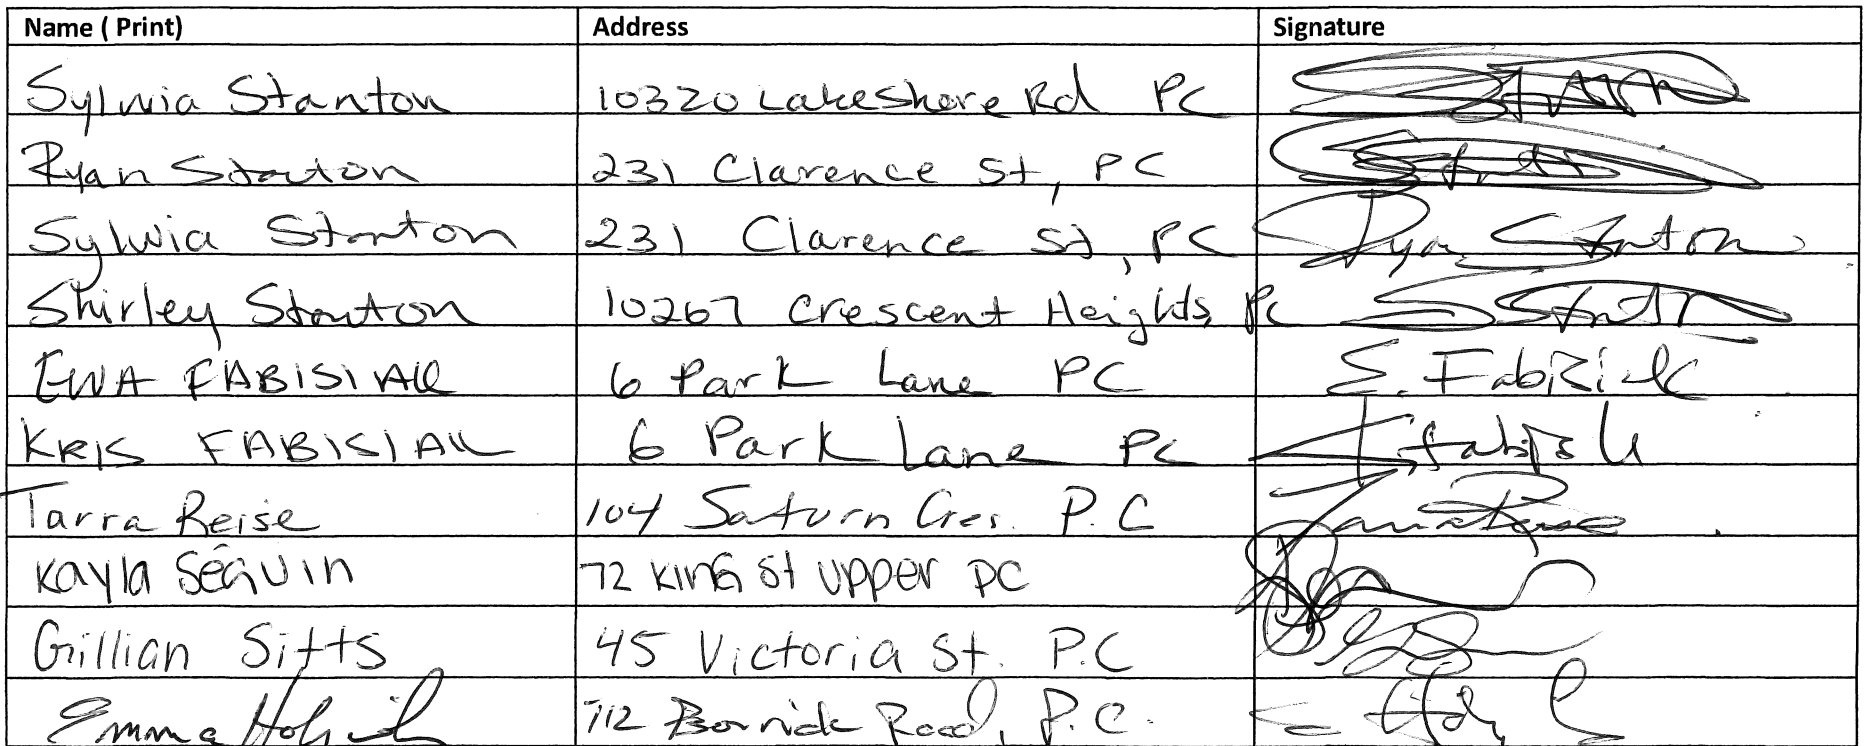 Name ( Print) Address Signature
Sylwia Stanton 10320 Lakeshore Rd PC
Ryan Stanton 231 Clarence St, PC
Sylwia Stanton 231 Clarence St, PC Ryan Stanton
Shirley Stanton 10267 Crescent Heights, PC
EWA FABISIAK 6 Park Lane PC E. Fabisiak
KRIS FABISIAK 6 Park Lane PC
Tarra Reise 104 Saturn Cres. P.C
Kayla Séguin 72 King St Upper PC
Gillian Sitts 45 Victoria St. P.C
Emma 712 Road, P.C.